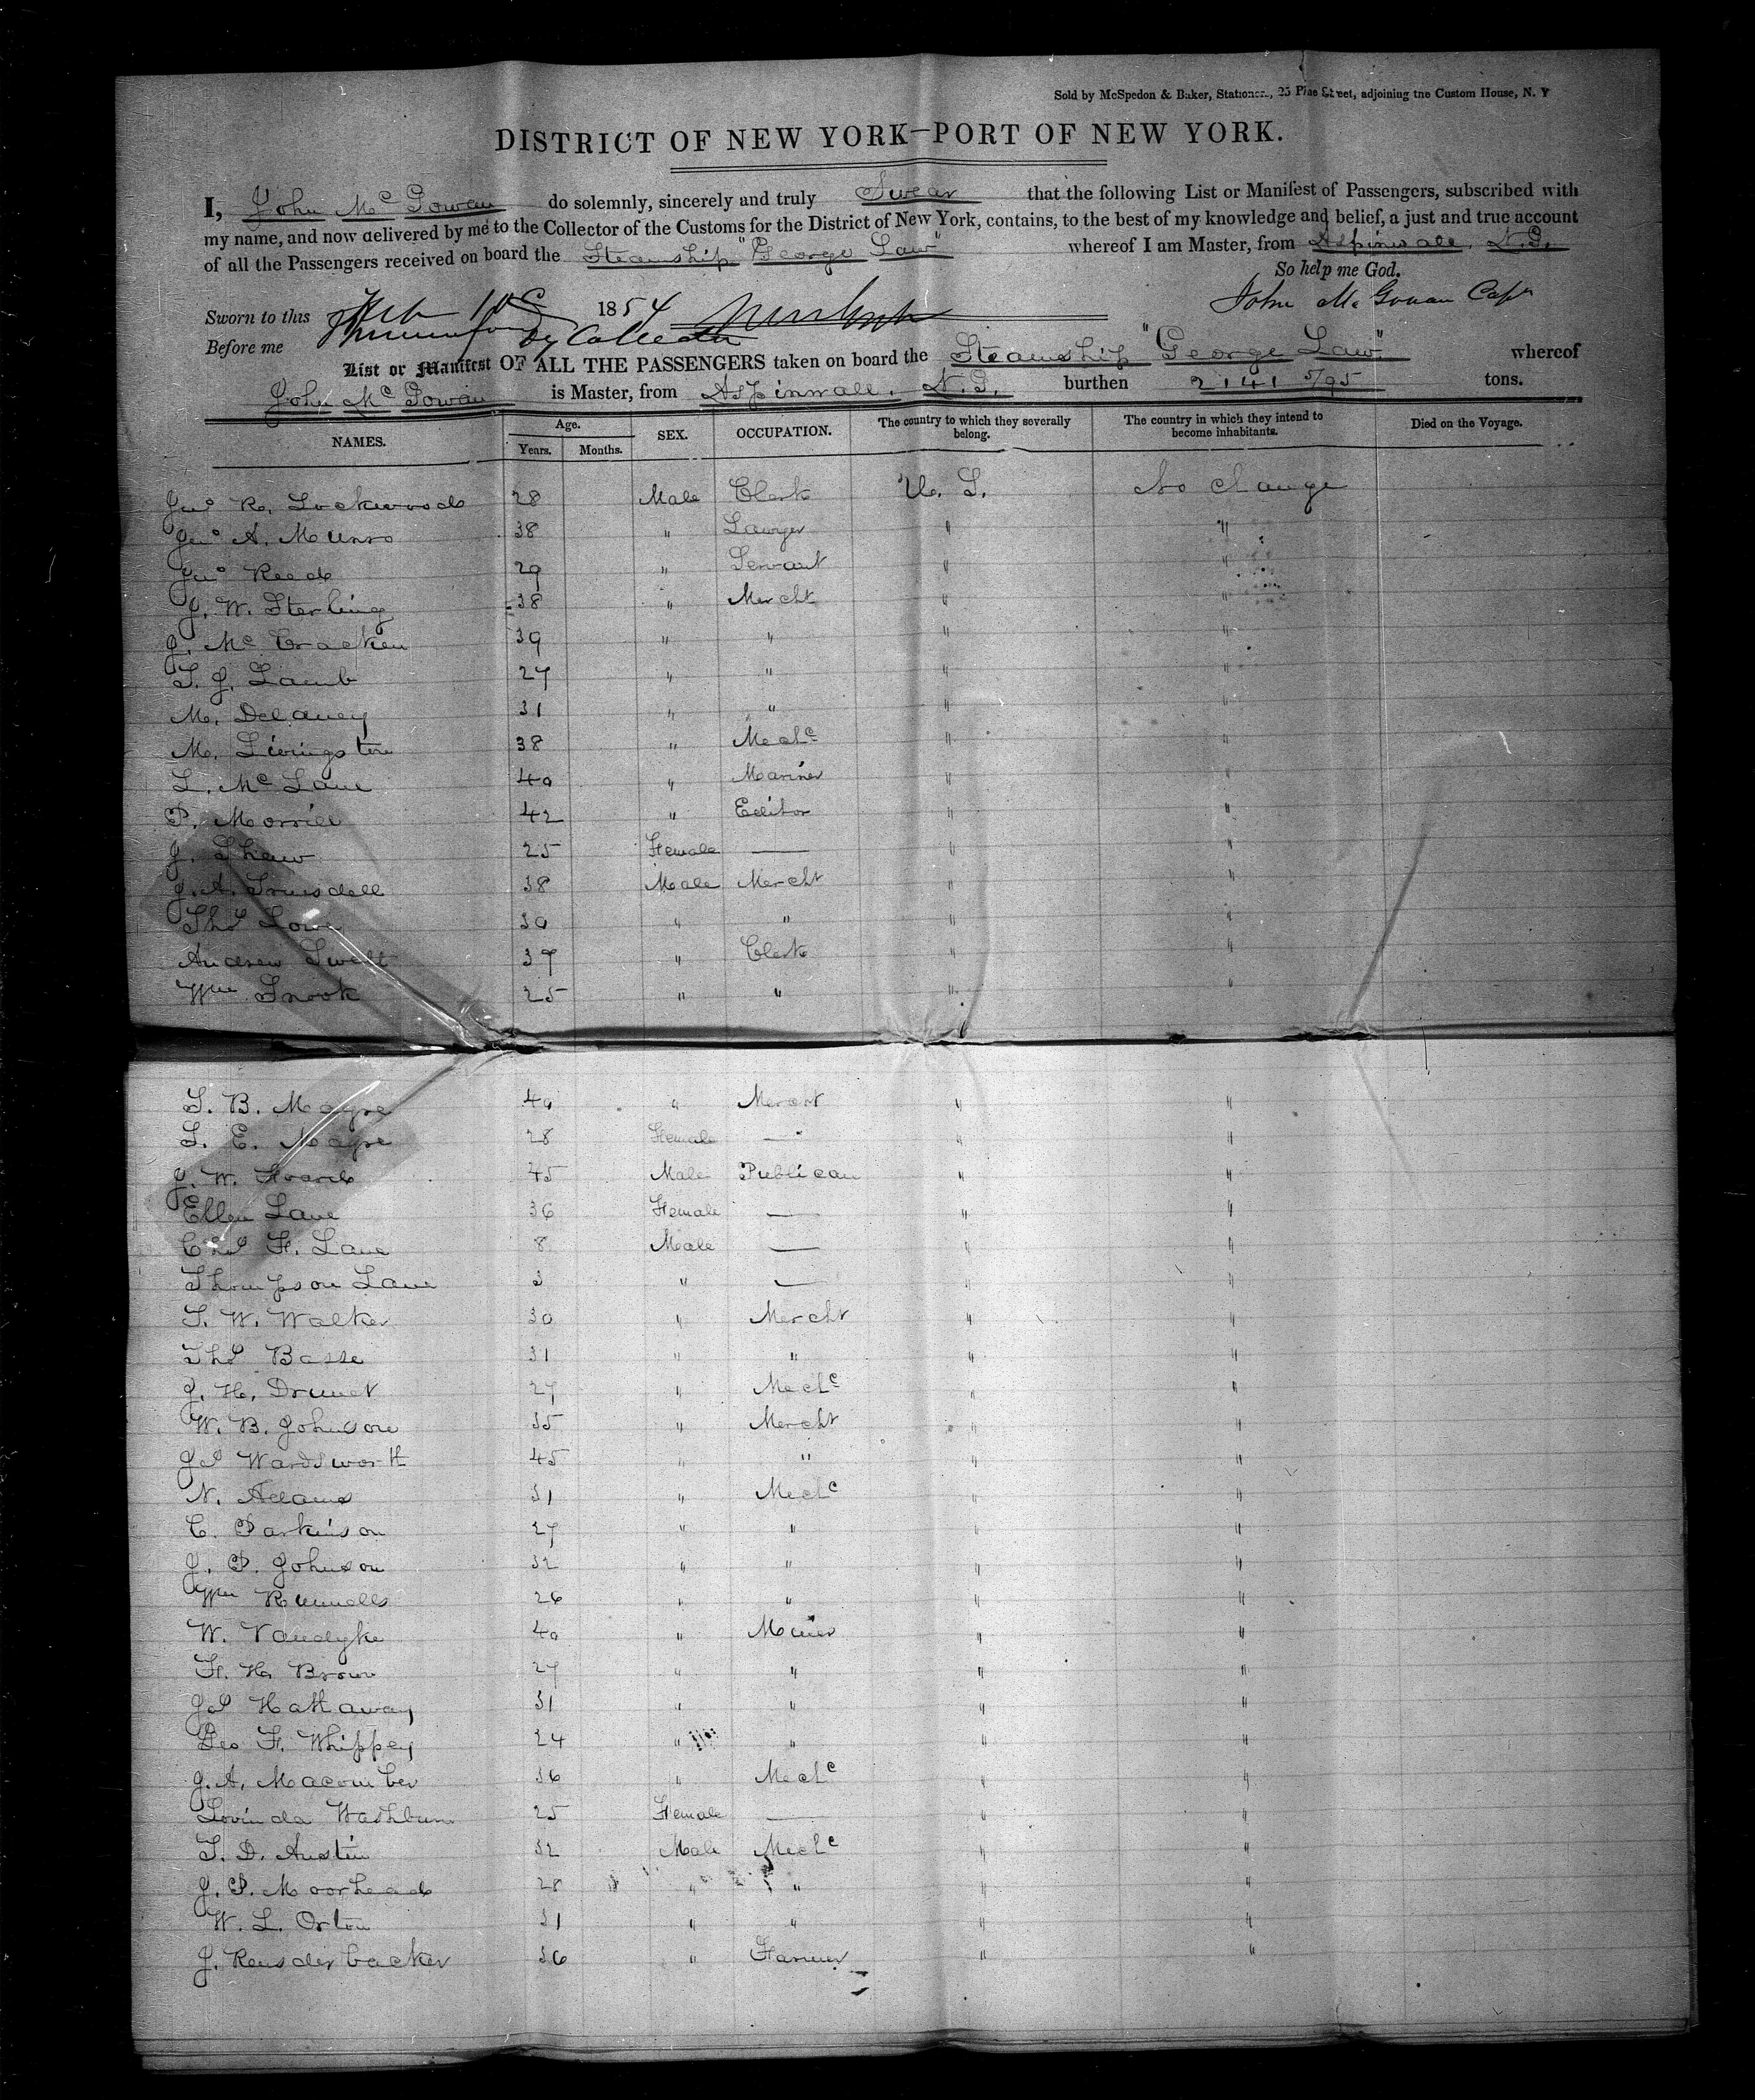 Sold by McSpedon & Baker, Stationers, 25 Pine Street, adjoining the Custom House, N. Y
DISTRICT OF NEW YORK—PORT OF NEW YORK.
I, John Mc Gowan do solemnly, sincerely and truly Swear that the following List or Manifest of Passengers, subscribed with
my name, and now delivered by me to the Collector of the Customs for the District of New York, contains, to the best of my knowledge and belief, a just and true account
of all the Passengers received on board the Steamship "George Law" whereof I am Master, from Aspinwall, N.G.
So help me God.
Sworn to this Feb 1854 John Mc Gowan Capt
Before me Dy Collector
List or Manifest OF ALL THE PASSENGERS taken on board the Steamship "George Law" whereof
John Mc Gowan is Master, from Aspinwall, N.G. burthen 2141 5/95 tons.
NAMES. Age. Years. Months. SEX. OCCUPATION. The country to which they severally belong. The country in which they intend to become inhabitants. Died on the Voyage.
Jno R. Lockwood 28 Male Clerk U. S. No change
Jno A. Munro 38 " Lawyer " "
Jno Reed 29 " Servant " "
J. W. Sterling 38 " Mercht " "
J. Mc Cracken 39 " " " "
T. J. Lamb 27 " " " "
M. Delaney 31 " " " "
M. Livingston 38 " Mechc " "
L. Mc Lane 40 " Mariner " "
P. Morrill 42 " Editor " "
J. Shaw 25 Female — " "
J. A. Truesdell 38 Male Mercht " "
Thos Low 30 " " " "
Andrew Swett 37 " Clerk " "
Wm Snook 25 " " " "
S. B. Mayre 40 " Mercht " "
S. E. Mayre 28 Female — " "
J. W. Hoard 45 Male Publican " "
Ellen Lane 36 Female — " "
Chas F. Lane 8 Male — " "
Thompson Lane 3 " — " "
T. W. Walker 30 " Mercht " "
Thos Basse 31 " " " "
J. H. Drumet 27 " Mechc " "
W. B. Johnson 35 " Mercht " "
Jas Wardsworth 45 " " " "
N. Adams 31 " Mechc " "
C. Parkinson 27 " " " "
J. P. Johnson 32 " " " "
Wm Runnells 26 " " " "
W. Vandyke 40 " Miner " "
F. H. Brown 27 " " " "
Jas Hattaway 31 " " " "
Geo F. Whippey 24 " " " "
J. A. Macomber 36 " Mechc " "
Lovinda Washburn 25 Female — " "
T. D. Austin 32 Male Mechc " "
J. P. Moorhead 28 " " " "
W. L. Orton 31 " " " "
J. Rensderbacker 36 " Farmer " "